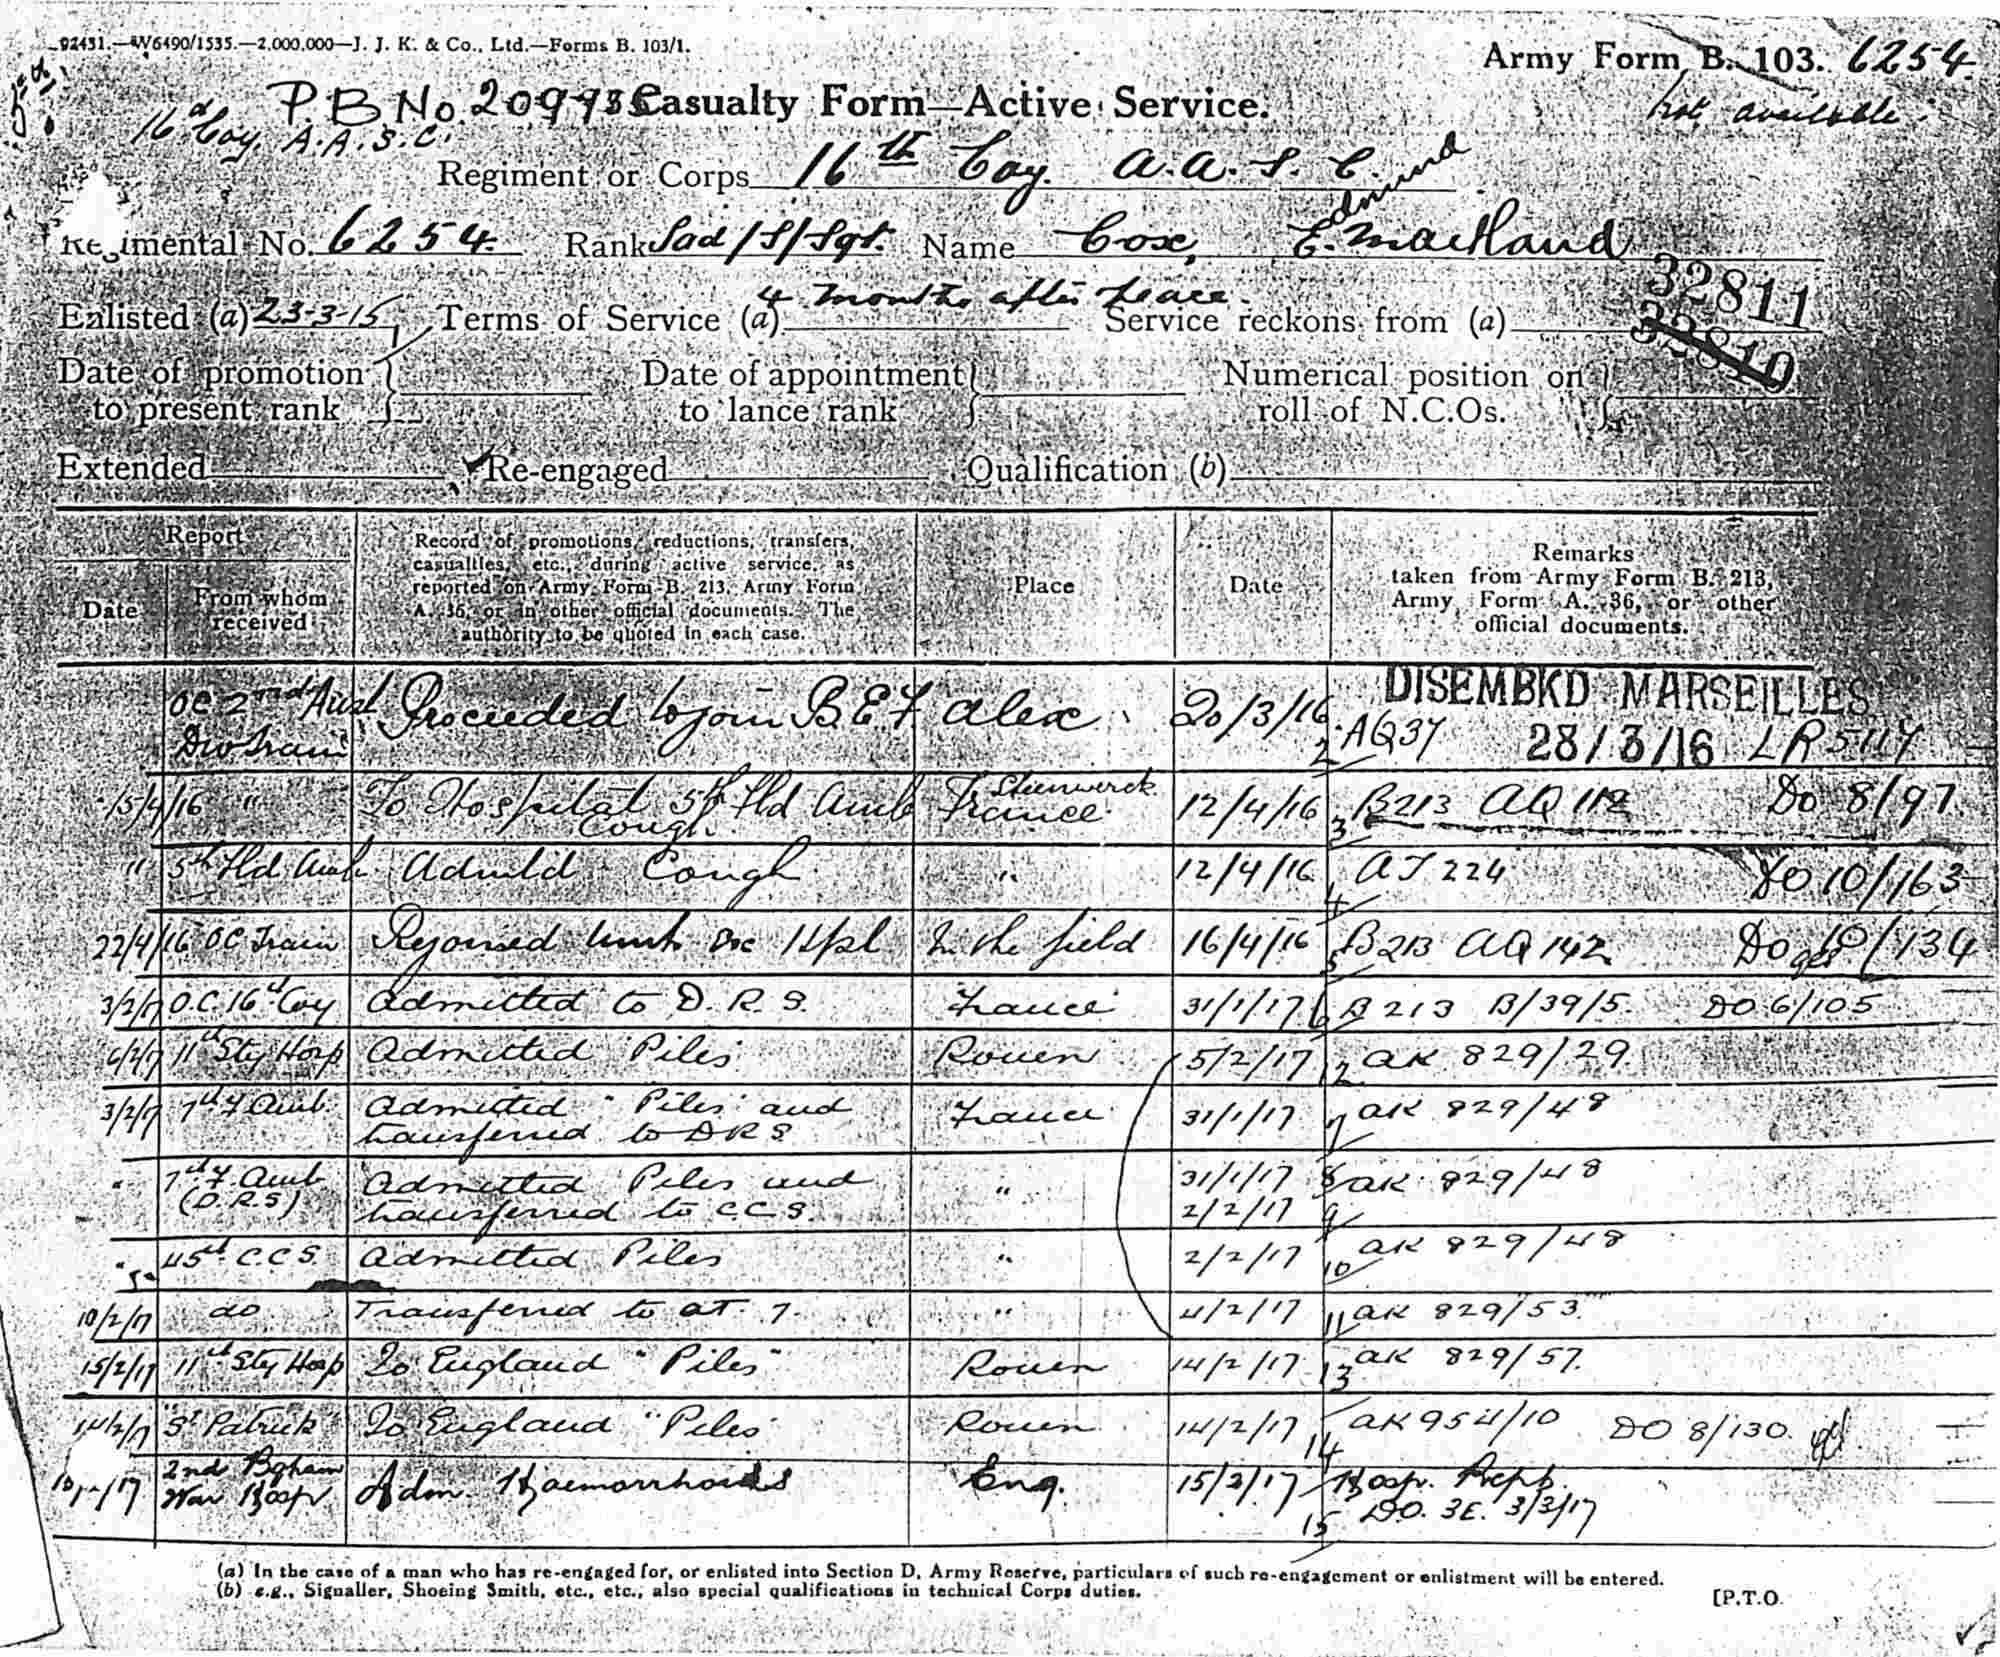 92431.—W6490/1535.—2,000,000—J. J. K. & Co., Ltd.—Forms B. 103/1.
Army Form B. 103. 6254.
not available
P.B No. Casualty Form—Active Service.
16 Coy. A.A.S.C.
Regiment or Corps 16th Coy. A.A.S.C.
Edmund
Regimental No. 6254. Rank Sad/S/Sgt. Name Cox, E. Maitland
32811
32810
4 months after peace.
Enlisted (a) 23-3-15 Terms of Service (a) Service reckons from (a)
Date of promotion to present rank
Date of appointment to lance rank
Numerical position on roll of N.C.Os.
Extended Re-engaged Qualification (b)
Report
Date
From whom received
Record of promotions, reductions, transfers,
casualties, etc., during active service, as
reported on Army Form B. 213, Army Form
A. 36, or in other official documents. The
authority to be quoted in each case.
Place
Date
Remarks
taken from Army Form B. 213,
Army Form A. 36, or other
official documents.
OC 2nd Aust Div Train Proceeded to join B.E.F Alex 20/3/16 2 AQ37 DISEMBKD MARSEILLES 28/3/16 LR 5117
15/4/16 " To Hospital 5th Fld Amb Cough France 12/4/16 3 B213 AQ 112 Do 8/97
" 5th Fld Amb Admitd Cough " 12/4/16 4 AJ 224 DO 10/163
22/4/16 OC Train Rejoined Unit Hspl In the field 16/4/16 5 B213 AQ 142 Do /134
3/2/17 O.C. 16th Coy Admitted to D.R.S. France 31/1/17 6 B 213 B/39/5. DO 6/105
6/2/17 11th Sty Hosp Admitted Piles Rouen 5/2/17 12 AK 829/29.
3/2/17 7th F Amb. Admitted "Piles" and transferred to DRS France 31/1/17 7 AK 829/48
" 7th F. Amb (D.R.S) Admitted Piles and transferred to C.C.S. " 31/1/17 2/2/17 8 9 AK 829/48
" 45th C.C.S. Admitted Piles " 2/2/17 10 AK 829/48
10/2/17 do Transferred to AT. 7. " 4/2/17 11 AK 829/53
15/2/17 11th Sty Hosp To England "Piles" Rouen 14/2/17 13 AK 829/57.
14/2/17 "St Patrick" To England "Piles" Rouen 14/2/17 14 AK 954/10 DO 8/130.
2nd Bgham War Hosp Adm. Haemorrhoids Eng. 15/2/17 15 Hosp. Repb. D.O. 3E. 3/3/17
(a) In the case of a man who has re-engaged for, or enlisted into Section D, Army Reserve, particulars of such re-engagement or enlistment will be entered.
(b) e.g., Signaller, Shoeing Smith, etc., etc., also special qualifications in technical Corps duties.
[P.T.O.